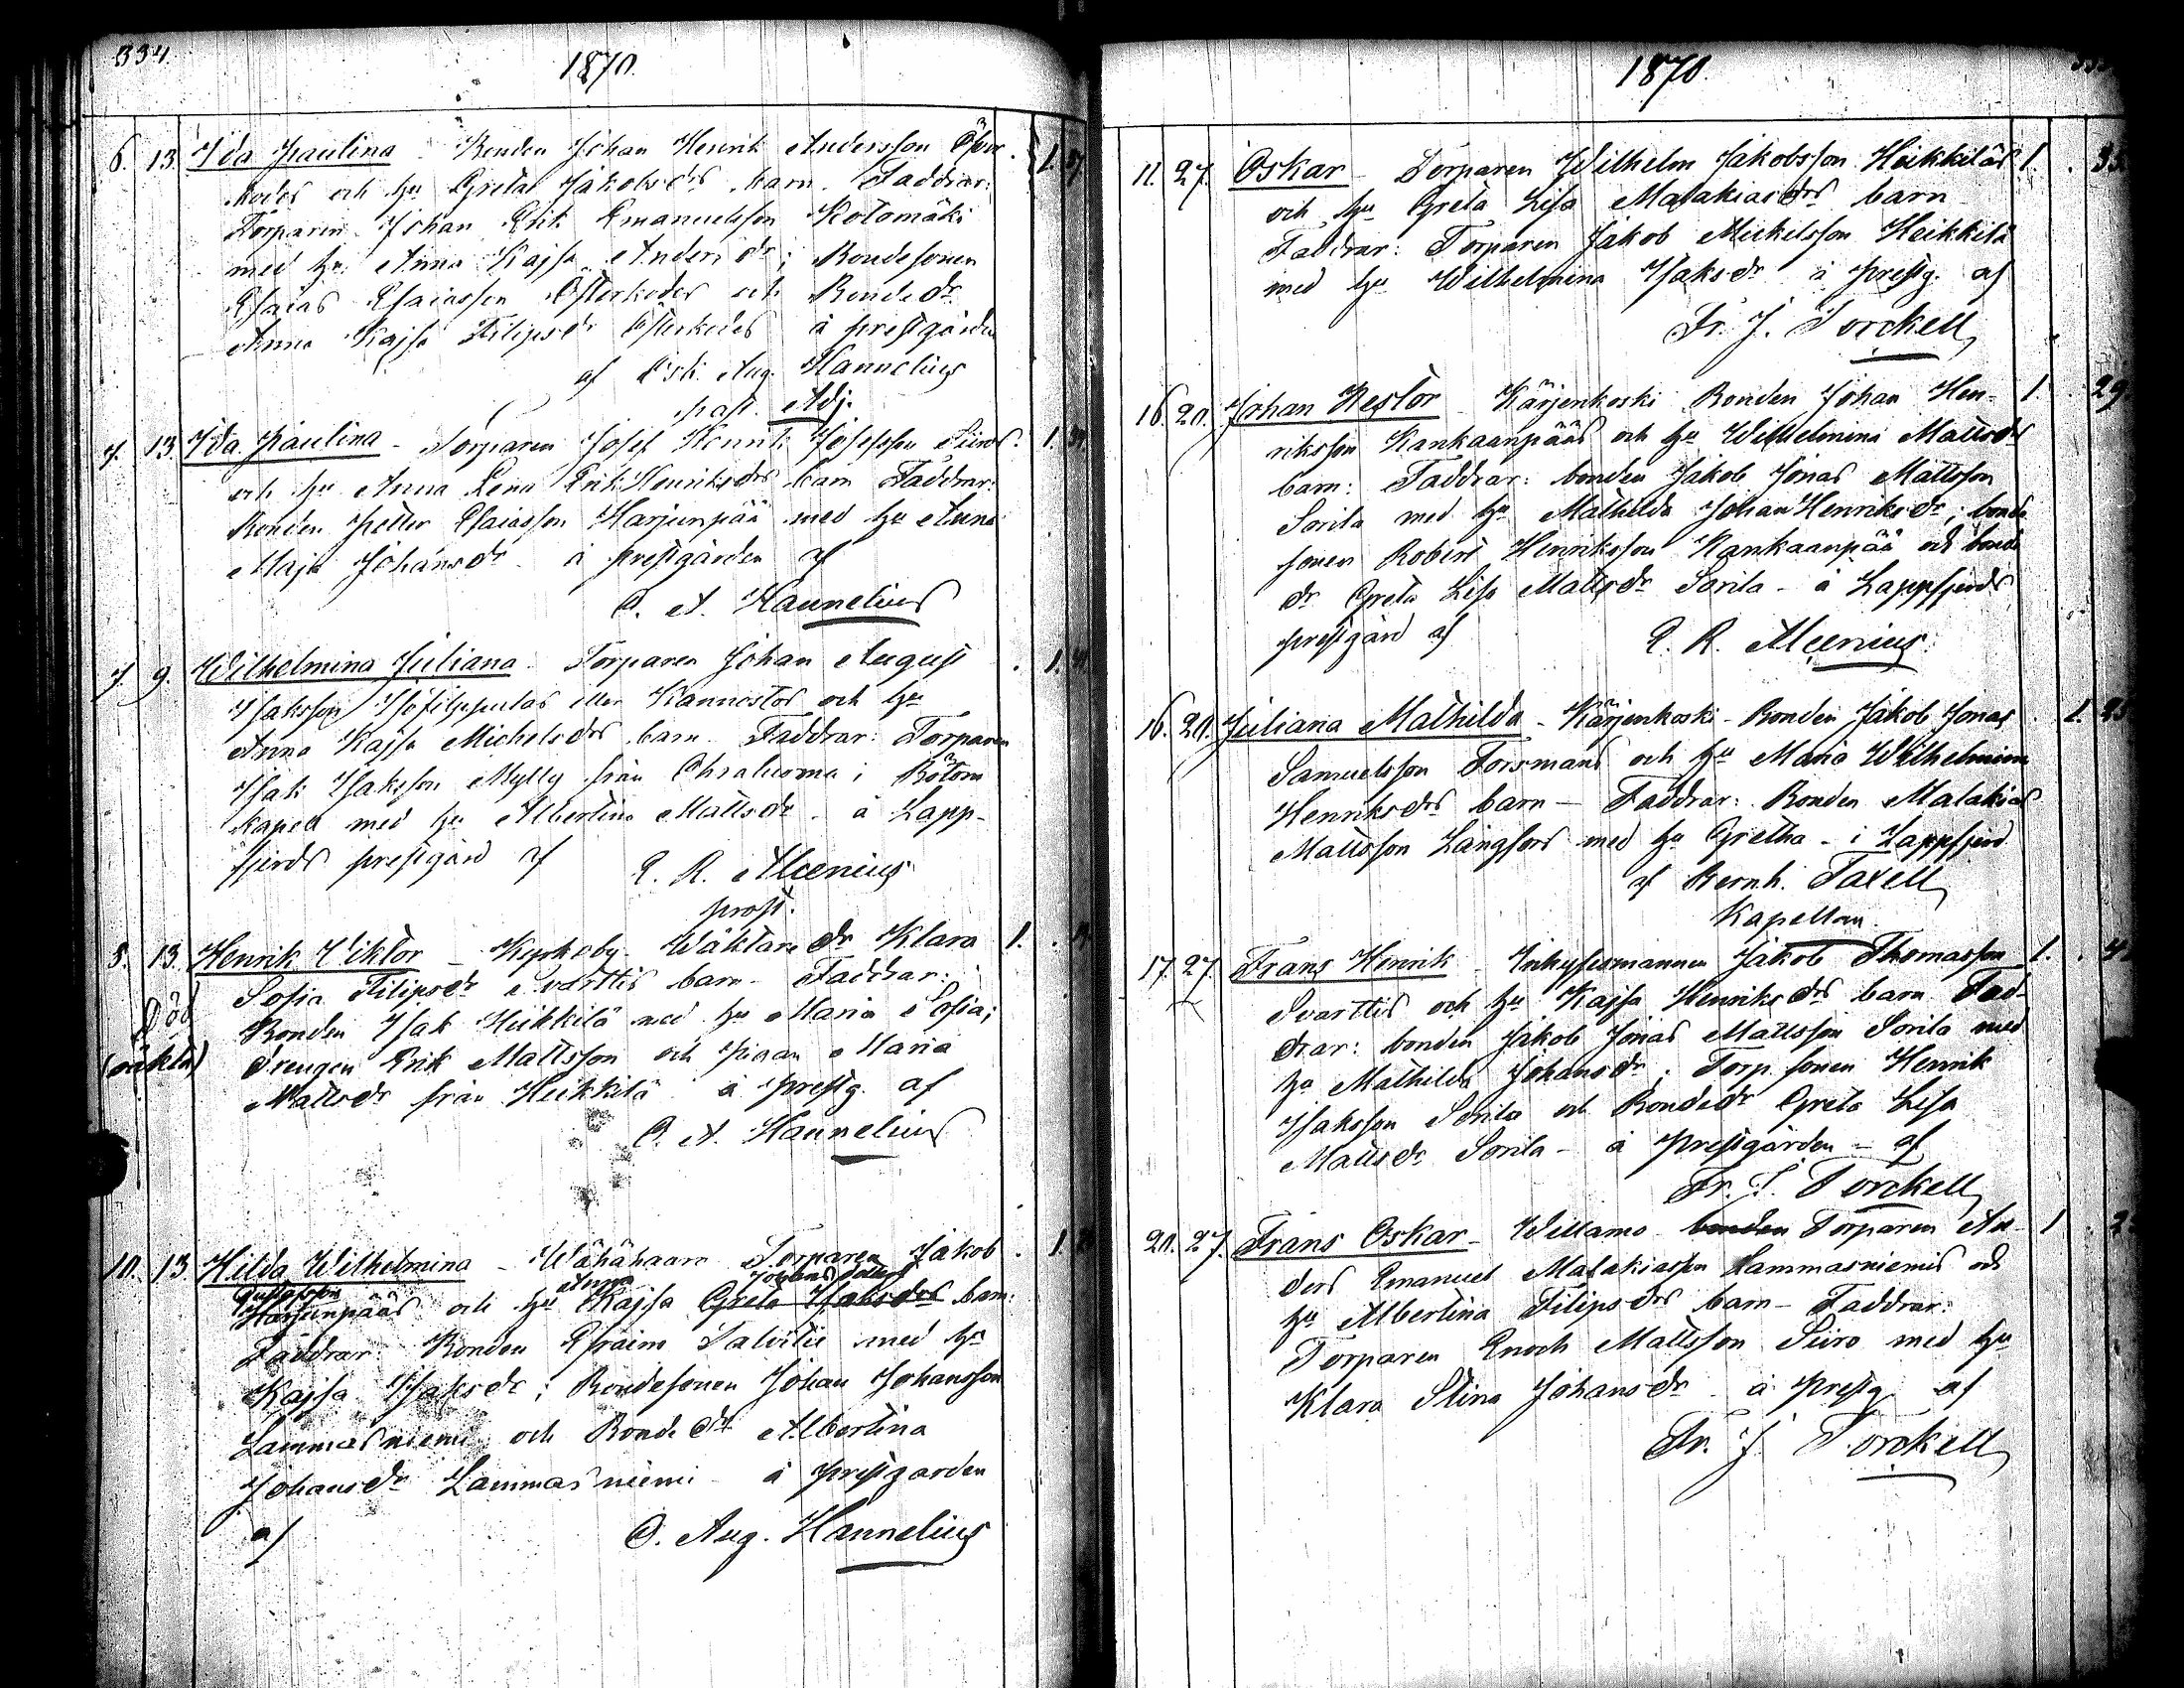 334
1870.
6. 13. Ida Paulina - Bonden Johan Henrik Andersson Öster- 1.
kodes och hu Greta Jakobsdrs barn. Faddrar:
Torparen Johan Erik Emanuelsson Kotomäki
med hu Anna Kajsa Andersdr; Bondesonen
Esaias Esaiasson Österkodes och Bondedr
Anna Kajsa Filipsdr Österkodes å prestgården
af Osk. Aug. Hannelius
past. Adj.
7. 13. Ida Paulina - Torparen Josef Henrik Josefsson Siiros 1.
och hu Anna Lena Erik Henriksdrs barn Faddrar:
Bonden Petter Esaiasson Harjunpää med hu Anna
Maja Johansdr - å prestgården af
O. A. Hannelius
7. 9. Wilhelmina Juliana. Torparen Johan August 1.
Isaksson eller Kannostos och hu
Anna Kajsa Michelsdrs barn. Faddrar: Torparen
Isak Isaksson Mylly från Ohraluoma i Bötom
kapell med hu Albertina Mattsdr. å Lapp-
fjerds prestgård af
E. R. Alcenius
prost.
8. 13. Henrik Viktor - Wäktare dr Klara 1.
Sofia Filipsdr Svarttis barn - Faddrar:
Död
Bonden Isak Heikkilä med hu Maria Sofia;
(oäkta) Drengen Erik Mattsson och Pigan Maria
Mattsdr från Heikkilä å prestg. af
O. A. Hannelius
10. 13. Hilda Wilhelmina - Wähähaara Torparen Jakob 1.
Gustafsson Anna Johans dotters
Harjunpääs och hu Kajsa Greta Isaksdrs barn:
Faddrar: Bonden Efraim Salvitie med hu
Kajsa Isaksdr; Bondesonen Johan Johansson
Lammasniemi och Bondedr Albertina
Johansdr Lammasniemi - å prestgården
af O. Aug. Hannelius
1870.
11. 27. Oskar - Torparen Wilhelm Jakobsson Heikkiläs 1.
och hu Greta Lisa Malakiasdrs barn
Faddrar: Torparen Jakob Mickelsson Heikkilä
med hu Wilhelmina Isaksdr å prestg. af
Fr. J. Torckell
16. 20. Johan Nestor - Kärjenkoski Bonden Johan Hen- 1. 29
riksson Kankaanpääs och hu Wilhelmina Mattsdrs
barn: Faddrar: bonden Jakob Jonas Mattsson
Sorila med hu Mathilda Johan Henriksdr; bonde
sonen Robert Henriksson Kankaanpää och bonde
dr Greta Lisa Mattsdr Sorila - å Lappfjerds
prestgård af E. R. Alcenius.
16. 20. Juliana Mathilda - Kärjenkoski - Bonden Jakob Jonas 1.
Samuelsson Forsmans och hu Maria Wilhelmina
Henriksdrs barn - Faddrar: Bonden Malakias
Mattsson Långfors med hu Gretha - i Lappfjerd
af Bernh. Taxell
Kapellan.
17. 27. Frans Henrik - Inhysesmannen Jakob Thomasson 1.
Svarttis och hu Kajsa Henriksdrs barn Fad-
drar: bonden Jakob Jonas Mattsson Sorila med
hu Mathilda Johansdr; Torp. sonen Henrik
Isaksson Sorila och Bondedr Greta Lisa
Mattsdr Sorila - å prestgården - af
Fr. J. Torckell
20. 27. Frans Oskar - Willamo bonden Torparen An- 1
ders Emanuel Malakiasson Lammasniemis och
hu Albertina Filipsdrs barn - Faddrar:
Torparen Enoch Mattsson Siiro med hu
Klara Stina Johansdr - å prestg. af
Fr. J. Torckell